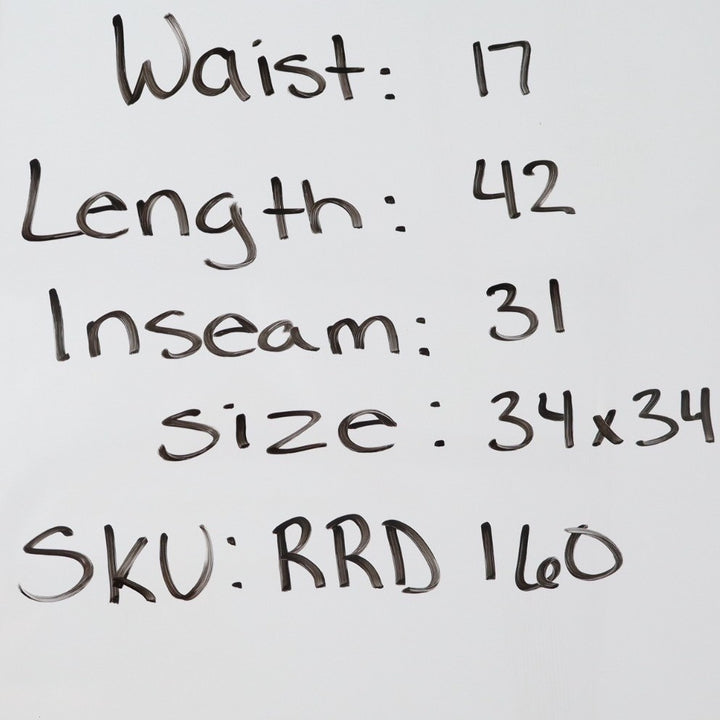 Waist: 17
Length: 42
Inseam: 31
size: 34x34
SKU: RRD 160